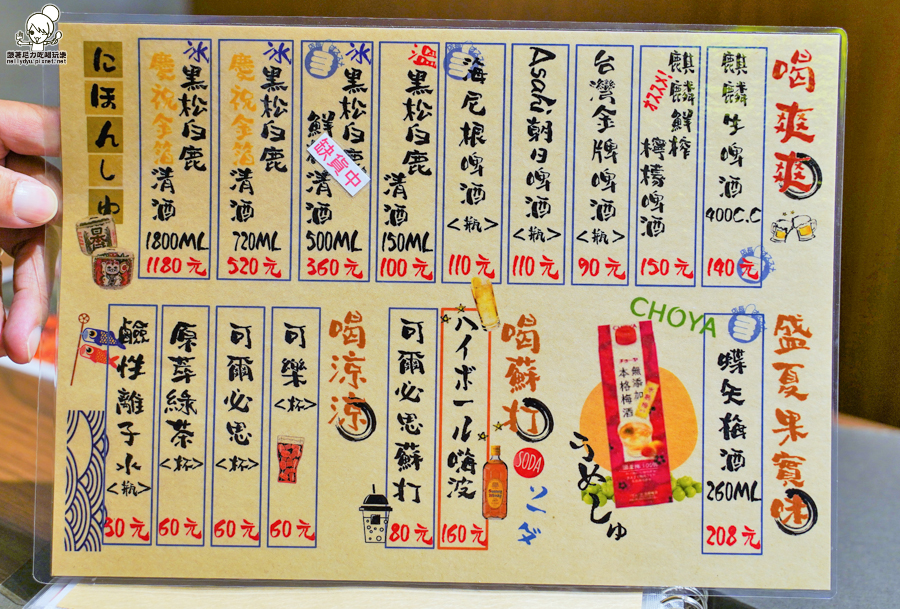 喝爽爽
麒麟生啤酒
400C.C
140元
麒麟鮮榨
檸檬啤酒
オススメ!
150元
台灣金牌啤酒
<瓶>
90元
Asahi朝日啤酒
<瓶>
110元
海尼根啤酒
<瓶>
110元
溫黑松白鹿
清酒
150ML
100元
冰黑松白鹿
鮮
清酒
缺貨中
500ML
360元
冰黑松白鹿
慶祝金箔
清酒
720ML
520元
冰黑松白鹿
慶祝金箔
清酒
1800ML
1180元
にほんしゅ
盛夏果實味
蝶矢梅酒
260ML
208元
CHOYA
無添加
本格梅酒
うめしゅ
喝蘇打
SODA
ソーダ
ハイボール嗨波
160元
可爾必思蘇打
80元
喝涼涼
可樂
<杯>
60元
可爾必思
<杯>
60元
原萃綠茶
<杯>
60元
鹼性離子水
<瓶>
30元
跟著尼力吃喝玩樂
nellydyu.pixnet.net